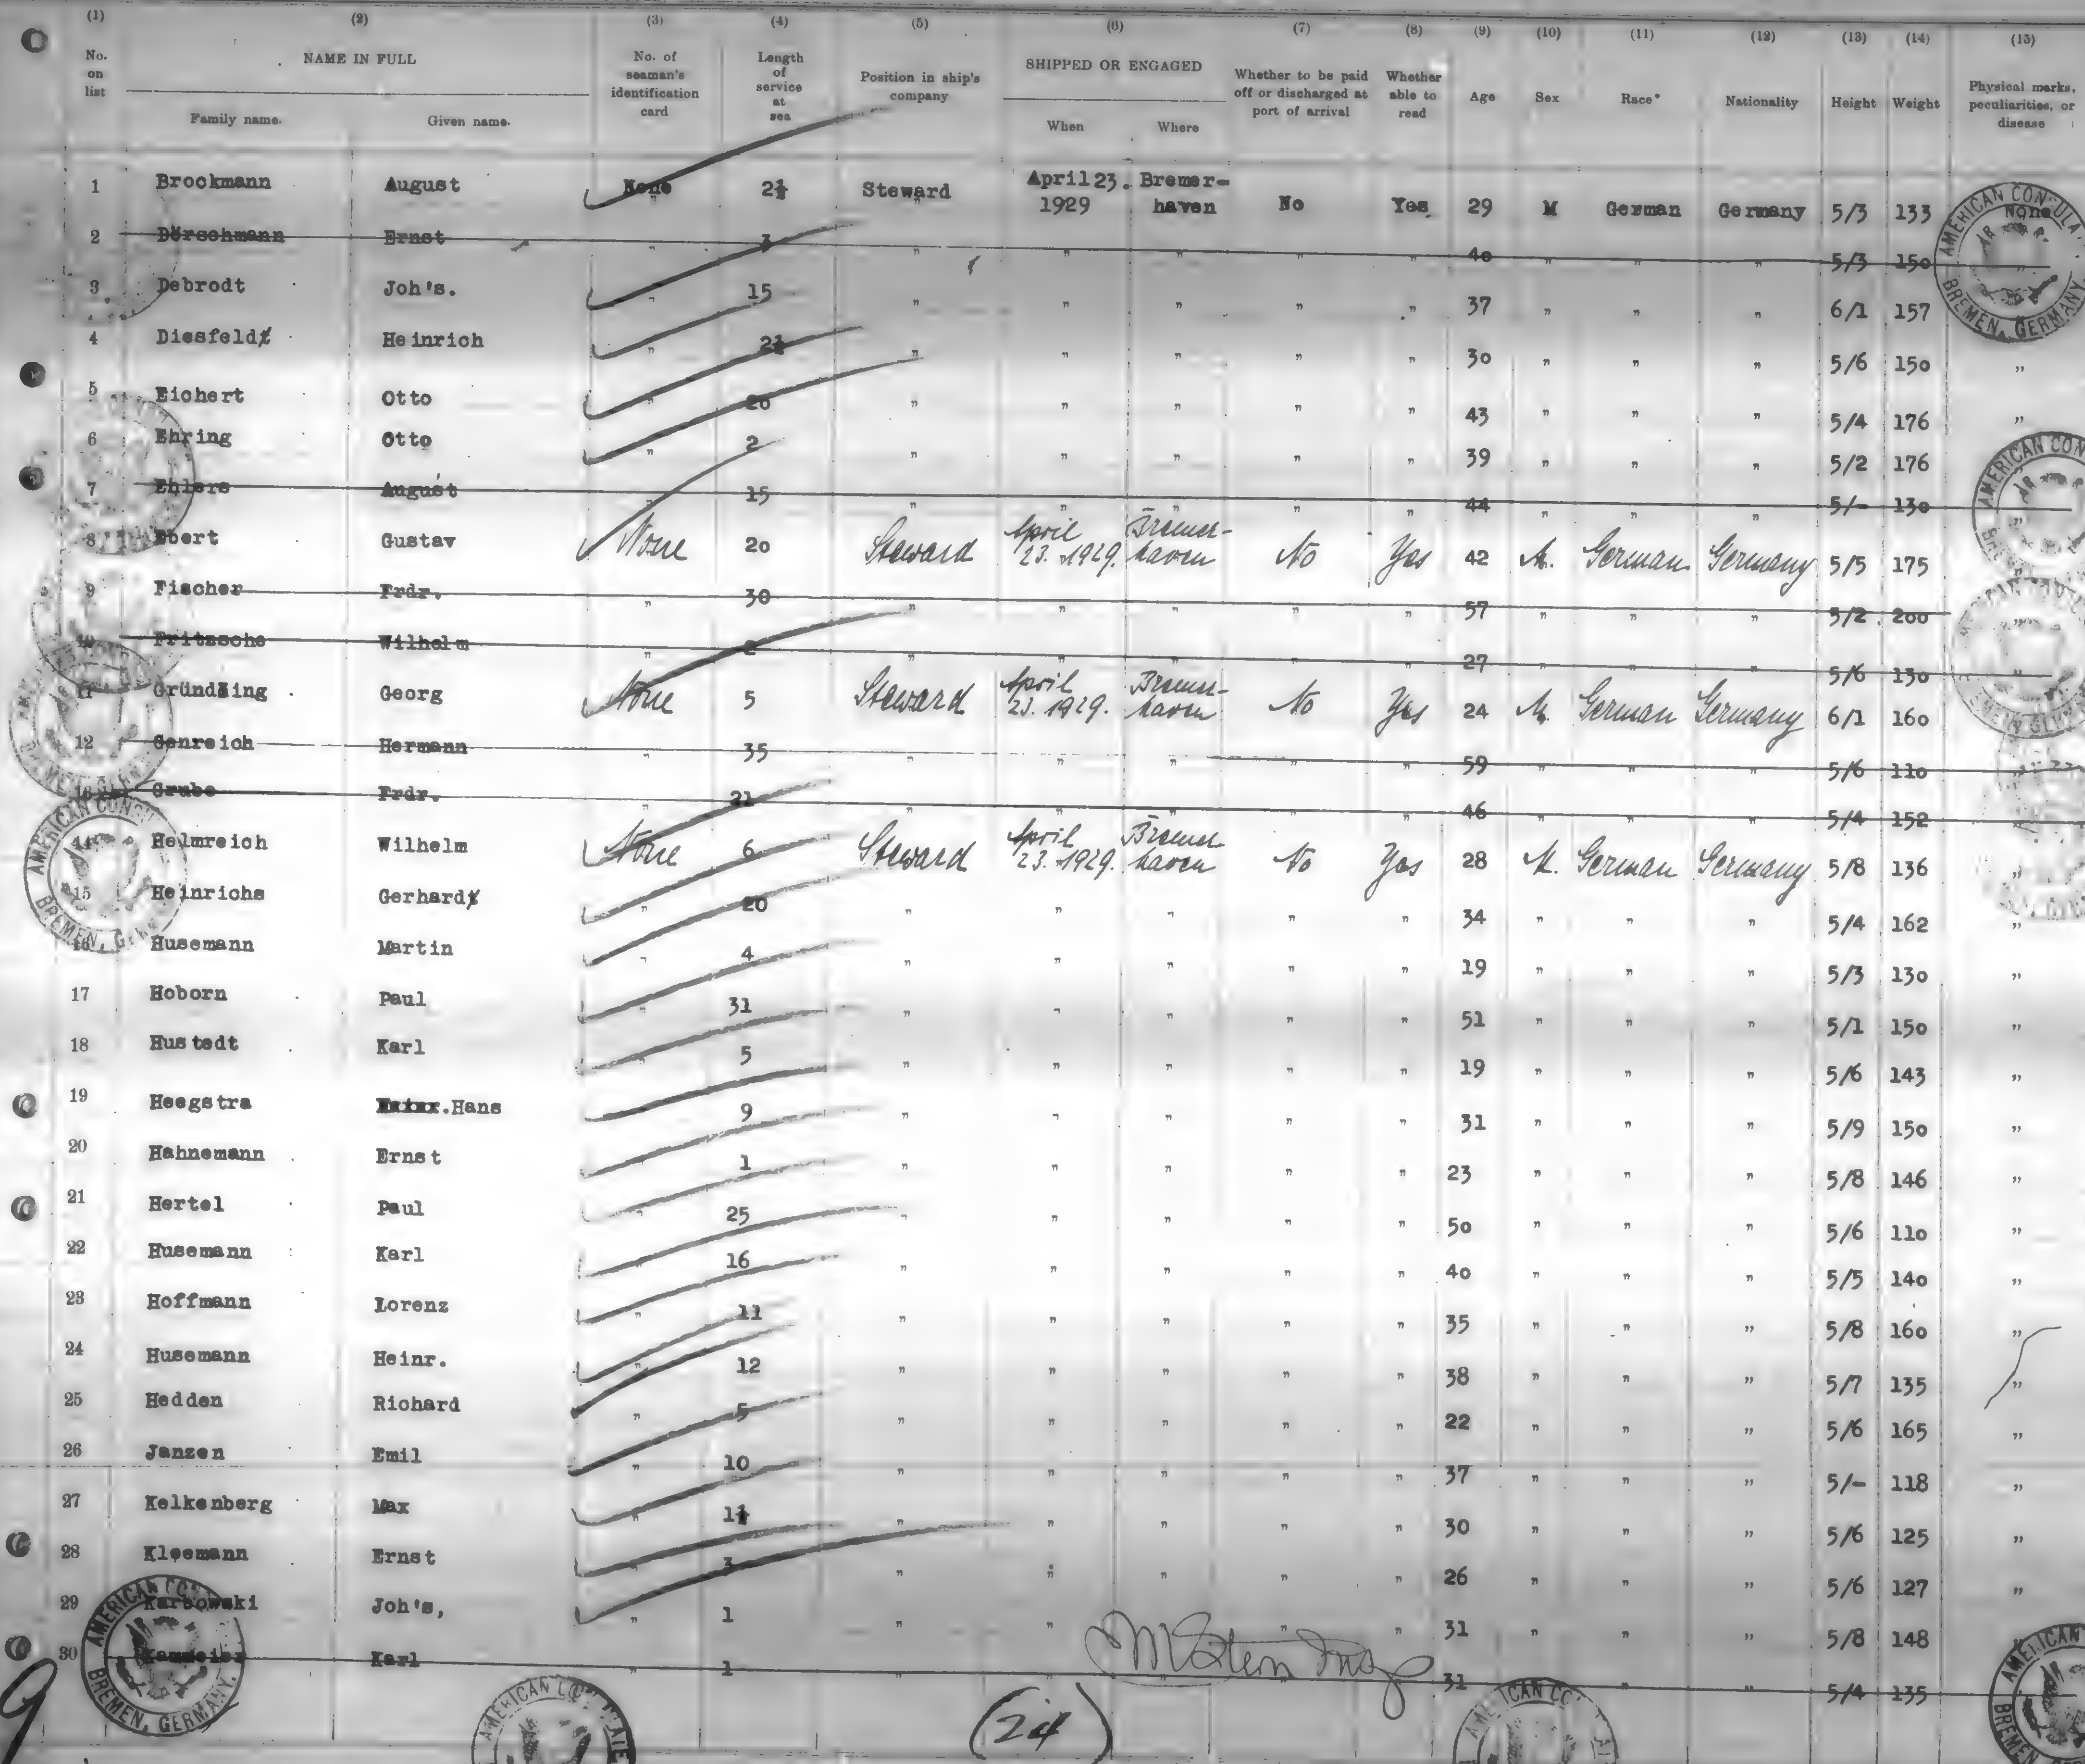 (1) (2) (3) (4) (5) (6) (7) (8) (9) (10) (11) (12) (13) (14) (15)
No. on list NAME IN FULL No. of seaman's identification card Length of service at sea Position in ship's company SHIPPED OR ENGAGED Whether to be paid off or discharged at port of arrival Whether able to read Age Sex Race* Nationality Height Weight Physical marks, peculiarities, or disease
Family name. Given name. When Where
1 Brockmann August None 2½ Steward April 23. 1929 Bremer-haven No Yes 29 M German Germany 5/3 133 None
2 Dörschmann Ernst " 3 " " " " " 40 " " " 5/3 150 "
3 Debrodt Joh's. " 15 " " " " " 37 " " " 6/1 157 "
4 Diesfeld Heinrich " 2½ " " " " " 30 " " " 5/6 150 "
5 Eichert Otto " 20 " " " " " 43 " " " 5/4 176 "
6 Ehring Otto " 2 " " " " " 39 " " " 5/2 176
7 Ehlers August " 15 " " " " " 44 " " " 5/- 130 "
8 Ebert Gustav None 20 Steward April 23. 1929. Bremer-haven No Yes 42 M. German Germany 5/5 175
9 Fischer Frdr. " 30 " " " " " 57 " " " 5/2 200 "
10 Fritzsche Wilhelm " 2 " " " " " 27 " " " 5/6 130 "
11 Gründling Georg None 5 Steward April 23. 1929. Bremer-haven No Yes 24 M. German Germany 6/1 160
12 Genreich Hermann " 35 " " " " " 59 " " " 5/6 110 "
13 Grube Frdr. " 21 " " " " " 46 " " " 5/4 152 "
14 Helmreich Wilhelm None 6 Steward April 23. 1929. Bremer haven No Yes 28 M. German Germany 5/8 136 "
15 Heinrichs Gerhard " 20 " " " " " 34 " " " 5/4 162 "
16 Husemann Martin " 4 " " " " " 19 " " " 5/3 130 "
17 Hoborn Paul " 31 " " " " " 51 " " " 5/1 150 "
18 Hustedt Karl " 5 " " " " " 19 " " " 5/6 143 "
19 Heegstra Hans " 9 " " " " " 31 " " " 5/9 150 "
20 Hahnemann Ernst " 1 " " " " " 23 " " " 5/8 146 "
21 Hertel Paul " 25 " " " " " 50 " " " 5/6 110 "
22 Husemann Karl " 16 " " " " " 40 " " " 5/5 140 "
23 Hoffmann Lorenz " 11 " " " " " 35 " " " 5/8 160 "
24 Husemann Heinr. " 12 " " " " " 38 " " " 5/7 135 "
25 Hedden Richard " 5 " " " " " 22 " " " 5/6 165 "
26 Janzen Emil " 10 " " " " " 37 " " " 5/- 118 "
27 Kelkenberg Max " 1½ " " " " " 30 " " " 5/6 125 "
28 Kleemann Ernst " 3 " " " " " 26 " " " 5/6 127 "
29 Karbowski Joh's, " 1 " " " " " 31 " " " 5/8 148
30 Kammeier Karl " 1 " " " 31 " " " 5/4 135
(24)
9
AMERICAN CONSULA
BREMEN, GERMANY.
AMERICAN CON
AMERICAN CONSU
BREMEN, GER
AMERICAN CO
BREMEN, GERMANY.